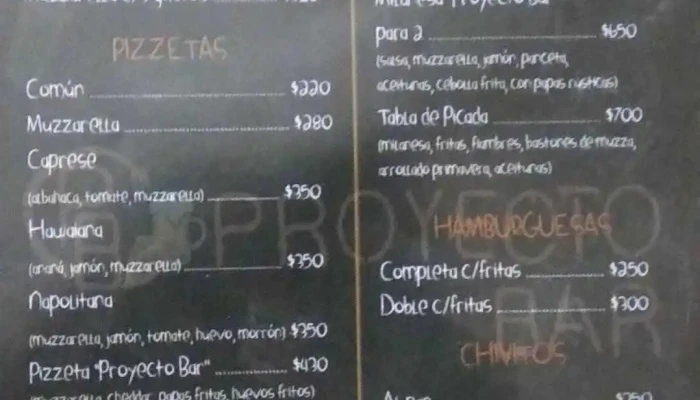 PIZZETAS
Común $220
Muzzarella $280
Caprese
(albahaca, tomate, muzzarella) $350
Hawaiana
(ananá, jamón, muzzarella) $350
Napolitana
(muzzarella, jamón, tomate, huevo, morrón) $350
Pizzeta "Proyecto Bar" $430
(muzzarella, cheddar, papas fritas, huevos fritos)
Milanesa Proyecto Bar
para 2 $650
(salsa, muzzarella, jamón, panceta,
aceitunas, cebolla frita, con papas rústicas)
Tabla de Picada $700
(milanesa, fritas, fiambres, bastones de muzza,
arrollado primavera, aceitunas)
HAMBURGUESAS
Completa c/fritas $250
Doble c/fritas $300
CHIVITOS
$350
PROYECTO
BAR